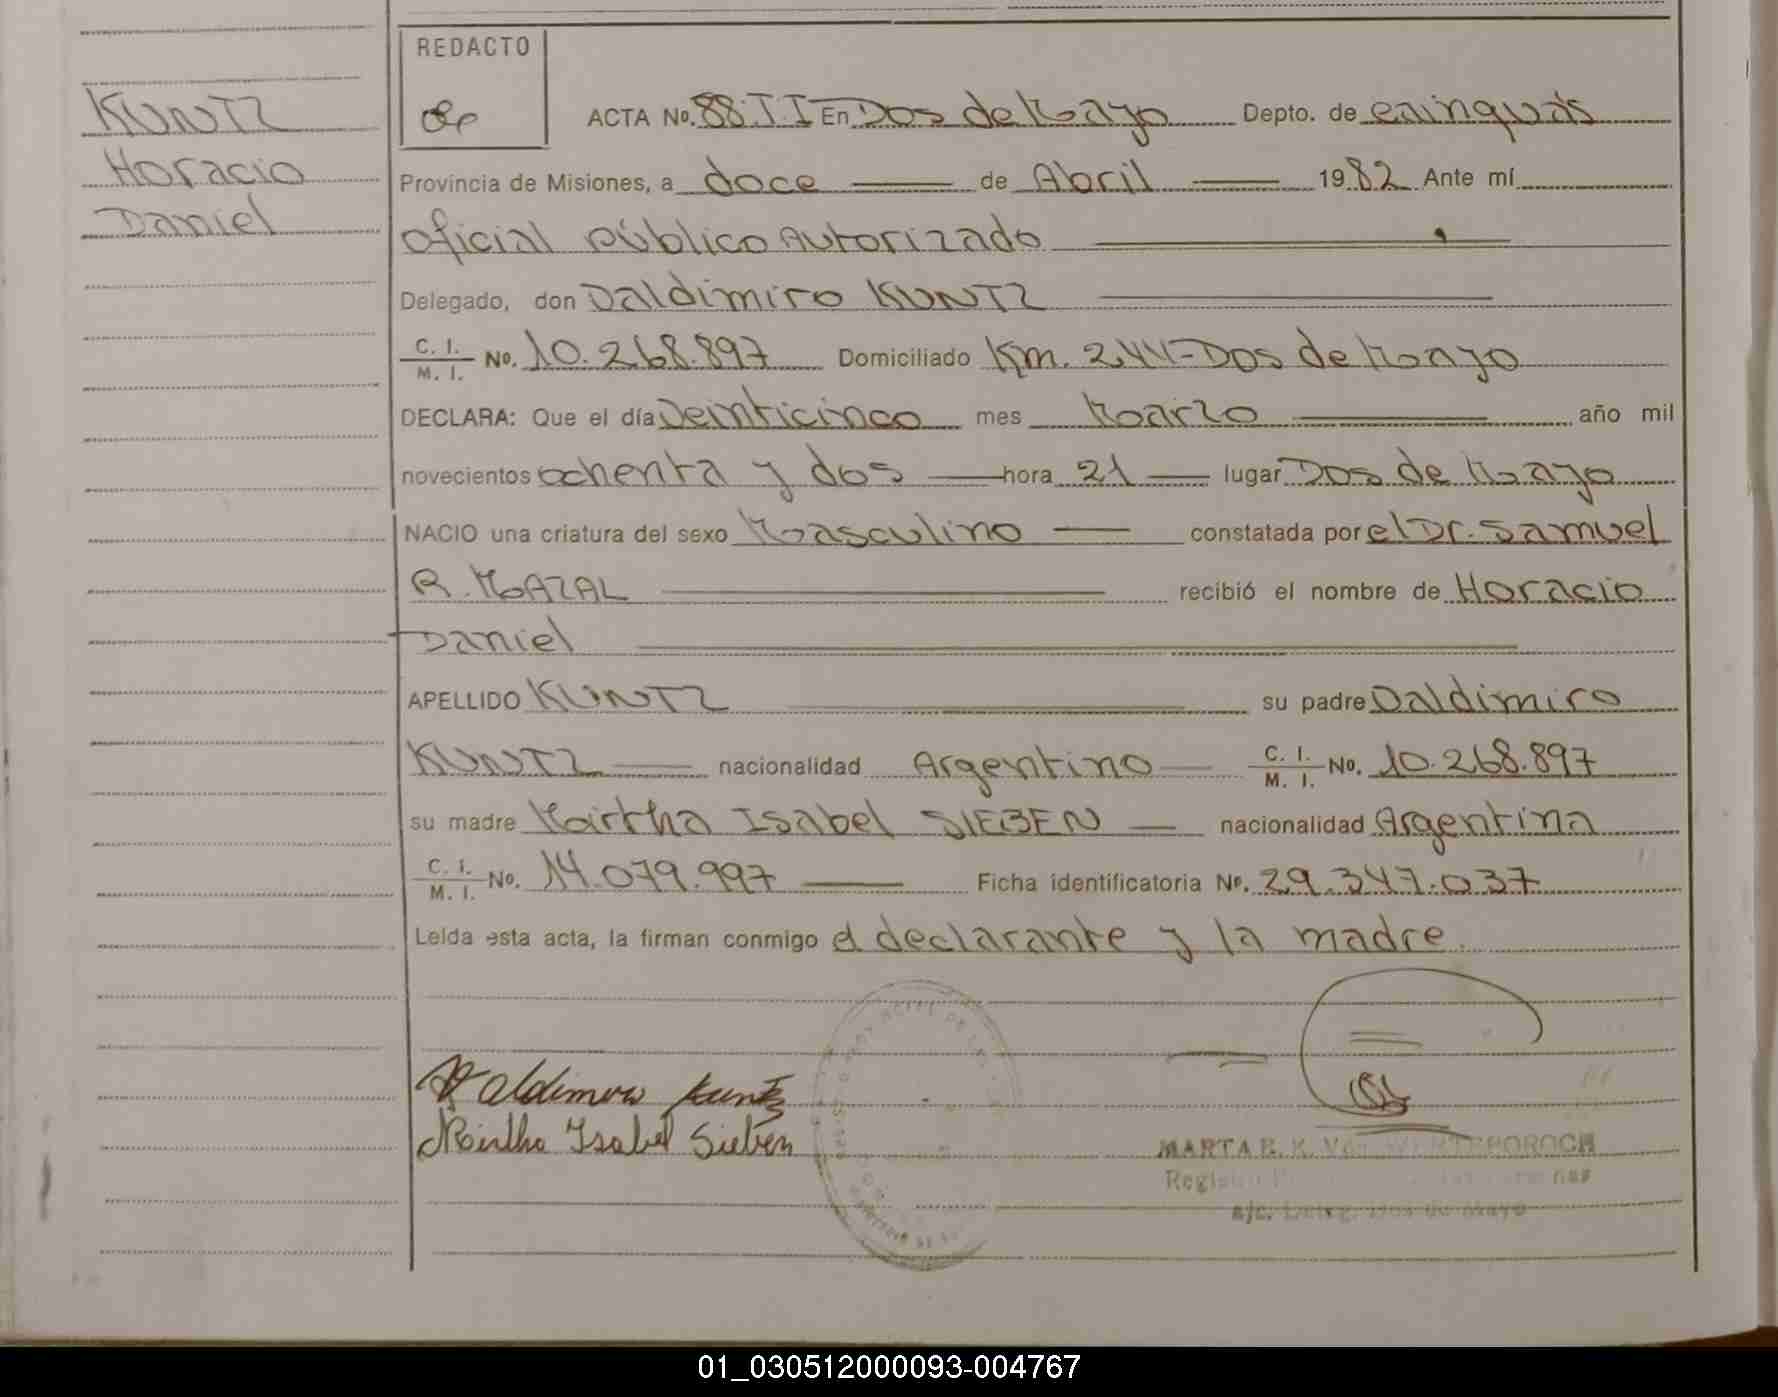 KUNTZ
Horacio
Daniel
REDACTO
ACTA No. 88.II En Dos de Mayo Depto. de Cainguás
Provincia de Misiones, a doce de Abril 1982 Ante mí
Oficial Público Autorizado
Delegado, don Valdimiro KUNTZ
C. I. / M. I. No. 10.268.897 Domiciliado Km. 244-Dos de Mayo
DECLARA: Que el día Veinticinco mes Marzo año mil
novecientos ochenta y dos hora 21 lugar Dos de Mayo
NACIO una criatura del sexo Masculino constatada por el Dr. Samuel
R. MAZAL recibió el nombre de Horacio
Daniel
APELLIDO KUNTZ su padre Valdimiro
KUNTZ nacionalidad Argentino C. I. / M. I. No. 10.268.897
su madre Mirtha Isabel SIEBEN nacionalidad Argentina
C. I. / M. I. No. 14.079.997 Ficha identificatoria No. 29.347.037
Leída esta acta, la firman conmigo el declarante y la madre.
Valdimiro Kuntz
Mirtha Isabel Sieben
MARTA
a/c. Deleg. Dos de Mayo
01_030512000093-004767